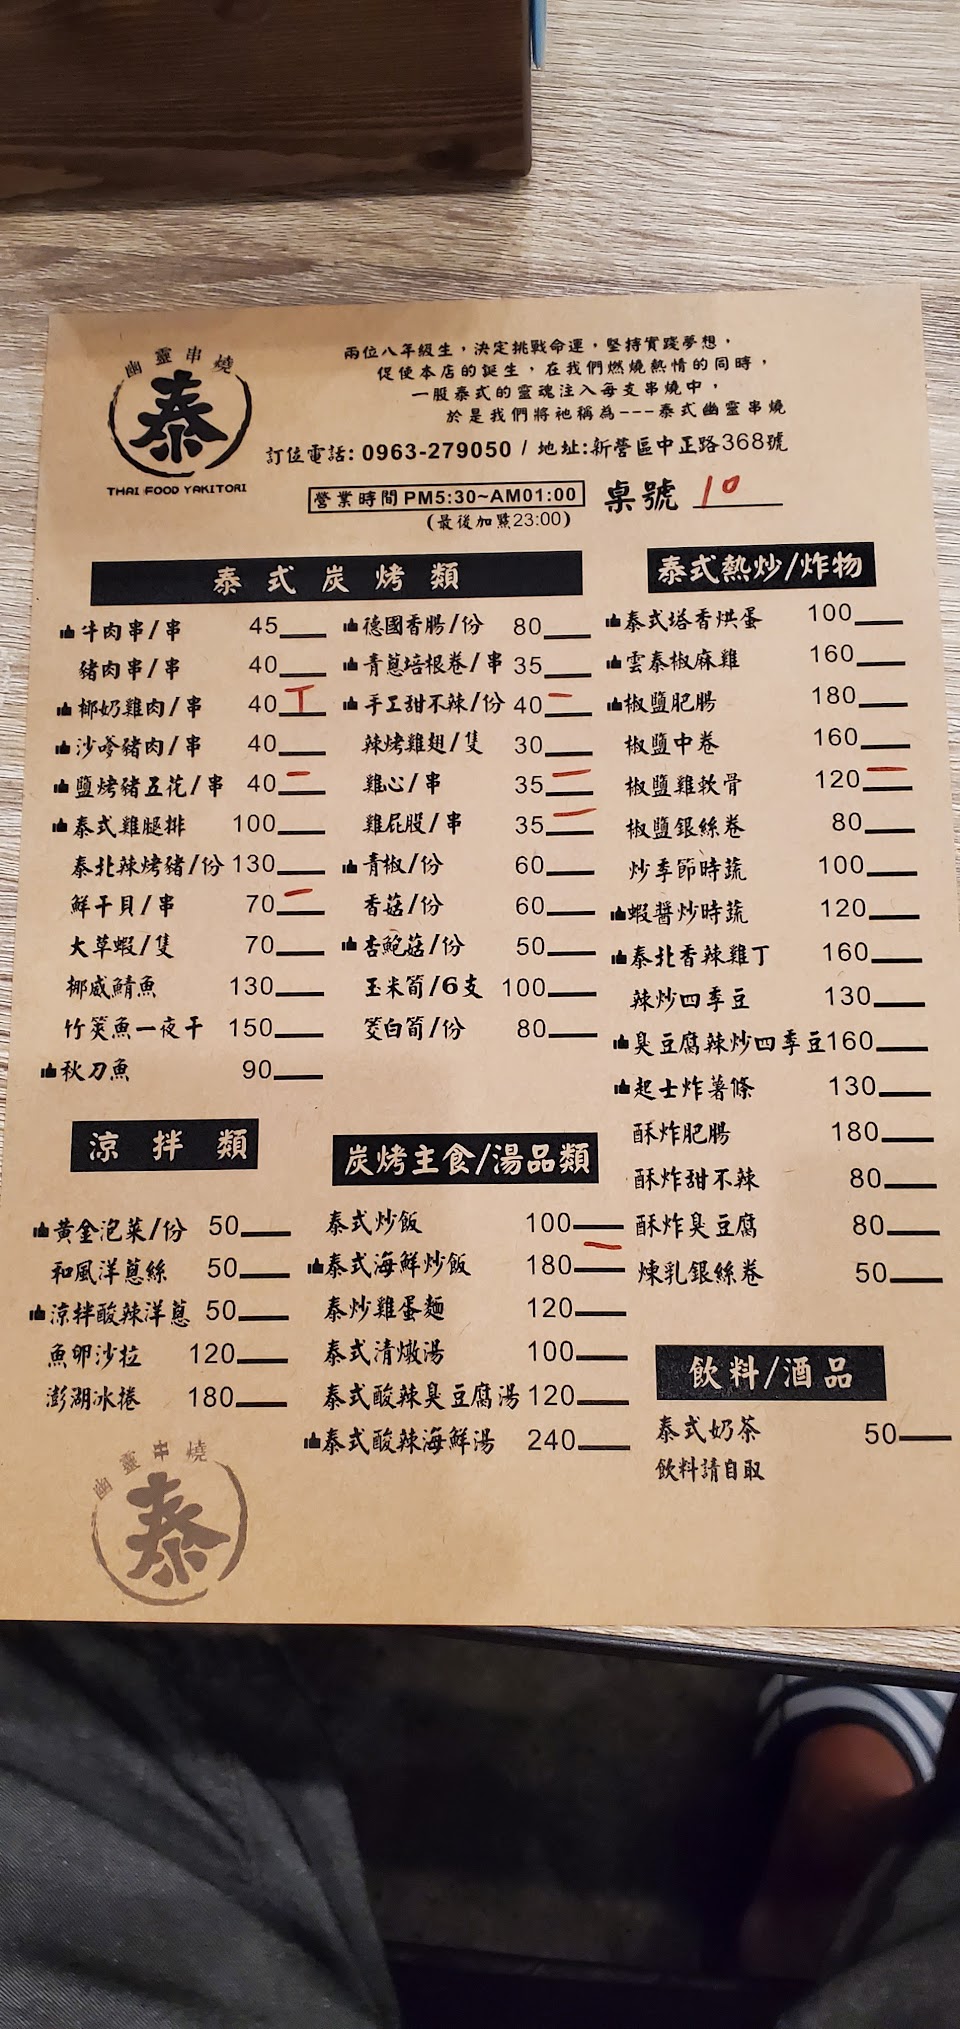 幽靈串燒
泰
THAI FOOD YAKITORI
兩位八年級生，決定挑戰命運，堅持實踐夢想，
促使本店的誕生，在我們燃燒熱情的同時，
一股泰式的靈魂注入每支串燒中，
於是我們將祂稱為---泰式幽靈串燒
訂位電話: 0963-279050 / 地址:新營區中正路368號
營業時間PM5:30~AM01:00
(最後加點23:00)
桌號 10
泰式炭烤類
牛肉串/串 45
豬肉串/串 40
椰奶雞肉/串 40 丅
沙嗲豬肉/串 40
鹽烤豬五花/串 40 一
泰式雞腿排 100
泰北辣烤豬/份 130
鮮干貝/串 70 一
大草蝦/隻 70
挪威鯖魚 130
竹筴魚一夜干 150
秋刀魚 90
德國香腸/份 80
青蔥培根卷/串 35
手工甜不辣/份 40 一
辣烤雞翅/隻 30
雞心/串 35 一
雞屁股/串 35 一
青椒/份 60
香菇/份 60
杏鮑菇/份 50
玉米筍/6支 100
筊白筍/份 80
泰式熱炒/炸物
泰式塔香烘蛋 100
雲泰椒麻雞 160
椒鹽肥腸 180
椒鹽中卷 160
椒鹽雞軟骨 120 一
椒鹽銀絲卷 80
炒季節時蔬 100
蝦醬炒時蔬 120
泰北香辣雞丁 160
辣炒四季豆 130
臭豆腐辣炒四季豆160
起士炸薯條 130
酥炸肥腸 180
酥炸甜不辣 80
酥炸臭豆腐 80
煉乳銀絲卷 50
涼拌類
黃金泡菜/份 50
和風洋蔥絲 50
涼拌酸辣洋蔥 50
魚卵沙拉 120
澎湖冰捲 180
炭烤主食/湯品類
泰式炒飯 100
泰式海鮮炒飯 180 一
泰炒雞蛋麵 120
泰式清燉湯 100
泰式酸辣臭豆腐湯 120
泰式酸辣海鮮湯 240
飲料/酒品
泰式奶茶 50
飲料請自取
幽靈串燒
泰